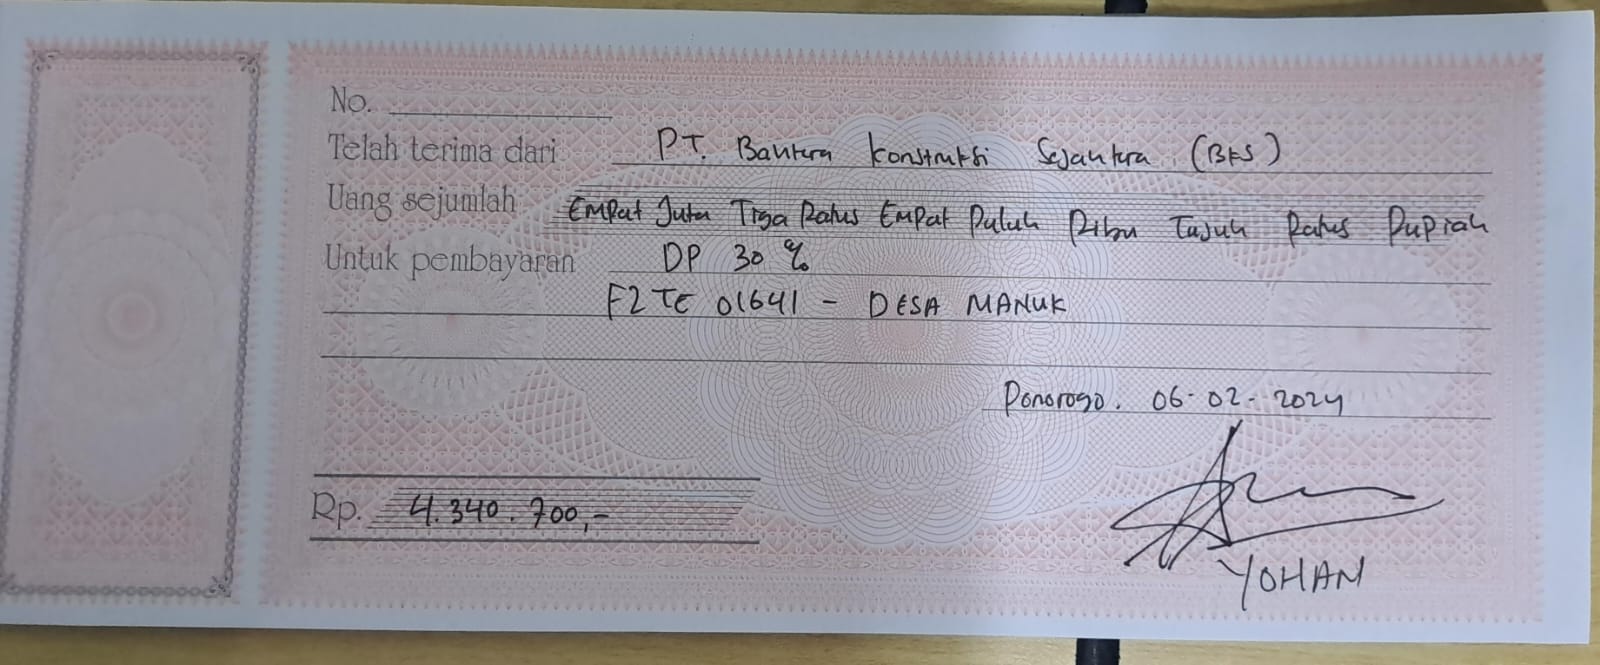 No.
Telah terima dari PT. Bantera Konstruksi Sejahtera (BKS)
Uang sejumlah Empat Juta Tiga Ratus Empat Puluh Ribu Tujuh Ratus Rupiah
Untuk pembayaran DP 30 %
F2TE 01641 - DESA MANUK
Ponorogo. 06-02-2024
Rp. 4.340.700,-
YOHAN